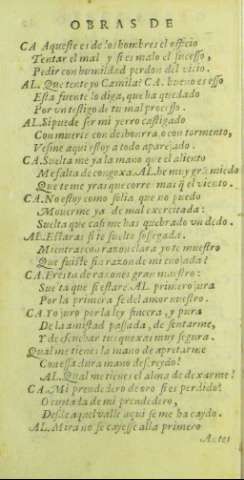 OBRAS DE
CA Aqueste es de los hombres el officio
Tentar el mal y si es malo el sucesso,
Pedir con humildad perdon del vicio.
AL. Que tente yo Camila? CA. bueno es esso
Esta fuente lo diga, que ha quedado
Por vn testigo de tu mal processo.
AL. Si puede ser mi yerro castigado
Con muerte con deshonrra o con tormento,
Vesme aqui estoy a todo aparejado.
CA. Suelta me ya la mano que el aliento
Me falta de congoxa. AL. he muy grã miedo
Que te me yras que corres mas q̃ el viento.
CA. No estoy como solia que no puedo
Mouerme ya de mal exercitada:
Suelta que casi me has quebrado vn dedo.
AL. Estaras si te suelto sossegada,
Mientras con razon clara yo te muestro
Que fuiste sin razon de mi enojada?
CA. Eres tu de razones gran maestro:
Suelta que si estare. AL. primero jura
Por la primera fe del amor nuestro.
CA. Yo juro por la ley sincera, y pura
De la amistad passada, de sentarme,
Y de escuchar tus quexas muy segura.
Qual me tienes la mano de apretarme
Con essa dura mano descreydo!
AL. Qual me tienes el alma de dexarme!
CA. Mi prendedero de oro si es perdido!
O cuytada de mi prendedero,
Desde aquel valle aqui se me ha caydo.
AL. Mira no se cayesse alla primero
Antes